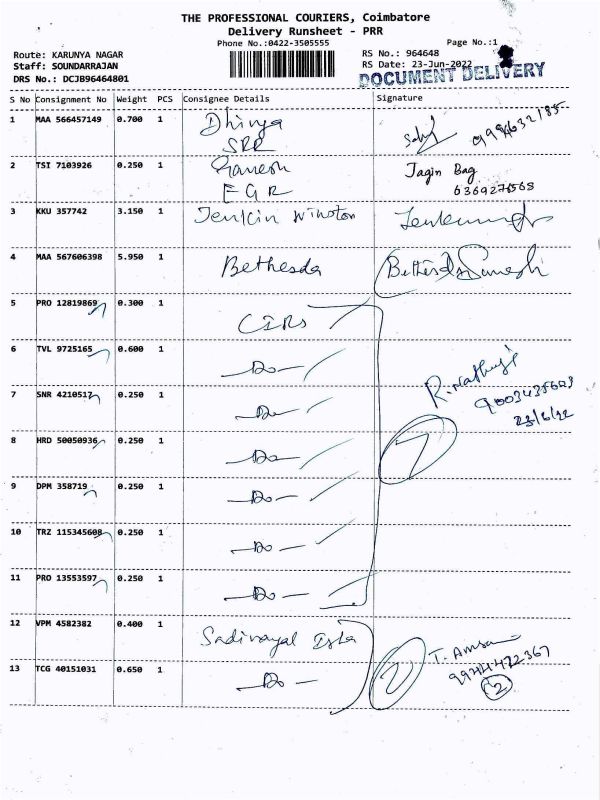 THE PROFESSIONAL COURIERS, Coimbatore
Delivery Runsheet - PRR
Phone No.:0422-3505555
Page No.:1
Route: KARUNYA NAGAR
RS No.: 964648
Staff: SOUNDARRAJAN
RS Date: 23-Jun-2022
DRS No.: DCJB96464801
DOCUMENT DELIVERY
S No Consignment No Weight PCS Consignee Details Signature
1 MAA 566457149 0.700 1 Dhivya
SRR
2 TSI 7103926 0.250 1 Ganesh Jagin Bag
EGR
3 KKU 357742 3.150 1 Jenkin Winston
4 MAA 567606398 5.950 1 Bethesda
5 PRO 12819869 0.300 1 CIRS
6 TVL 9725165 0.600 1 -Do-
7 SNR 4210517 0.250 1 -Do-
R. Nathiya
9003435603
23/6/22
8 HRD 50050936 0.250 1 -Do- 7
9 DPM 358719 0.250 1 -Do-
10 TRZ 115345608 0.250 1 -Do-
11 PRO 13553597 0.250 1 -Do-
12 VPM 4582382 0.400 1 Sadivayal Isha
T. Amsa
9944472367
13 TCG 40151031 0.650 1 -Do- 2
2